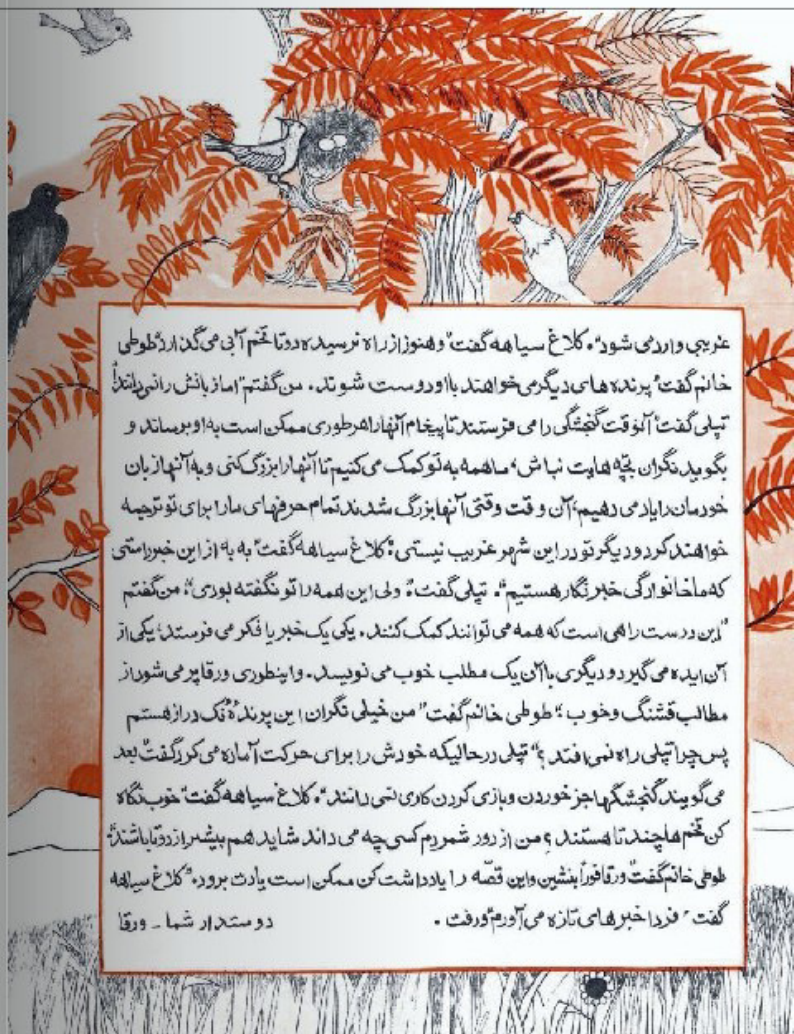 غریبی وارد می شود". کلاغ سیاهه گفت" و هنوز از راه نرسیده دو تا تخم آبی می گذارد" طوطی
خانم گفت" پرنده های دیگر می خواهند با او دوست شوند. من گفتم" اما زبانش را نمی دانند"
تپلی گفت" آنوقت گنجشگی را می فرستند تا پیغام آنها را هر طوری ممکن است به او برساند و
بگوید نگران بچّه هایت نباش، ما همه به تو کمک می کنیم تا آنها را بزرگ کنی و به آنها زبان
خودمان را یاد می دهیم، آن وقت وقتی آنها بزرگ شدند تمام حرفهای ما را برای تو ترجمه
خواهند کرد و دیگر تو در این شهر غریب نیستی" کلاغ سیاهه گفت" به به از این خبر راستی
که ما خانوادگی خبرنگار هستیم". تپلی گفت" ولی این همه را تو نگفته بودی"، من گفتم
"این درست راهی است که همه می توانند کمک کنند. یکی یک خبر یا فکر می فرستد، یکی از
آن ایده می گیرد و دیگری با آن یک مطلب خوب می نویسد. و اینطوری ورقا پر می شود از
مطالب قشنگ و خوب" طوطی خانم گفت" من خیلی نگران این پرندهٔ نُک دراز هستم
پس چرا تپلی راه نمی افتد؟" تپلی در حالیکه خودش را برای حرکت آماده می کرد گفت" بعد
می گویند گنجشگها جز خوردن و بازی کردن کاری نمی دانند". کلاغ سیاهه گفت" خوب نگاه
کن تخم ها چند تا هستند؟ من از دور شمردم کسی چه می داند شاید هم بیشتر از دو تا باشند"
طوطی خانم گفت" ورقا فوراً بنشین و این قصّه را یادداشت کن ممکن است یادت برود." کلاغ سیاهه
گفت" فردا خبرهای تازه می آورم" و رفت. دوستدار شما - ورقا